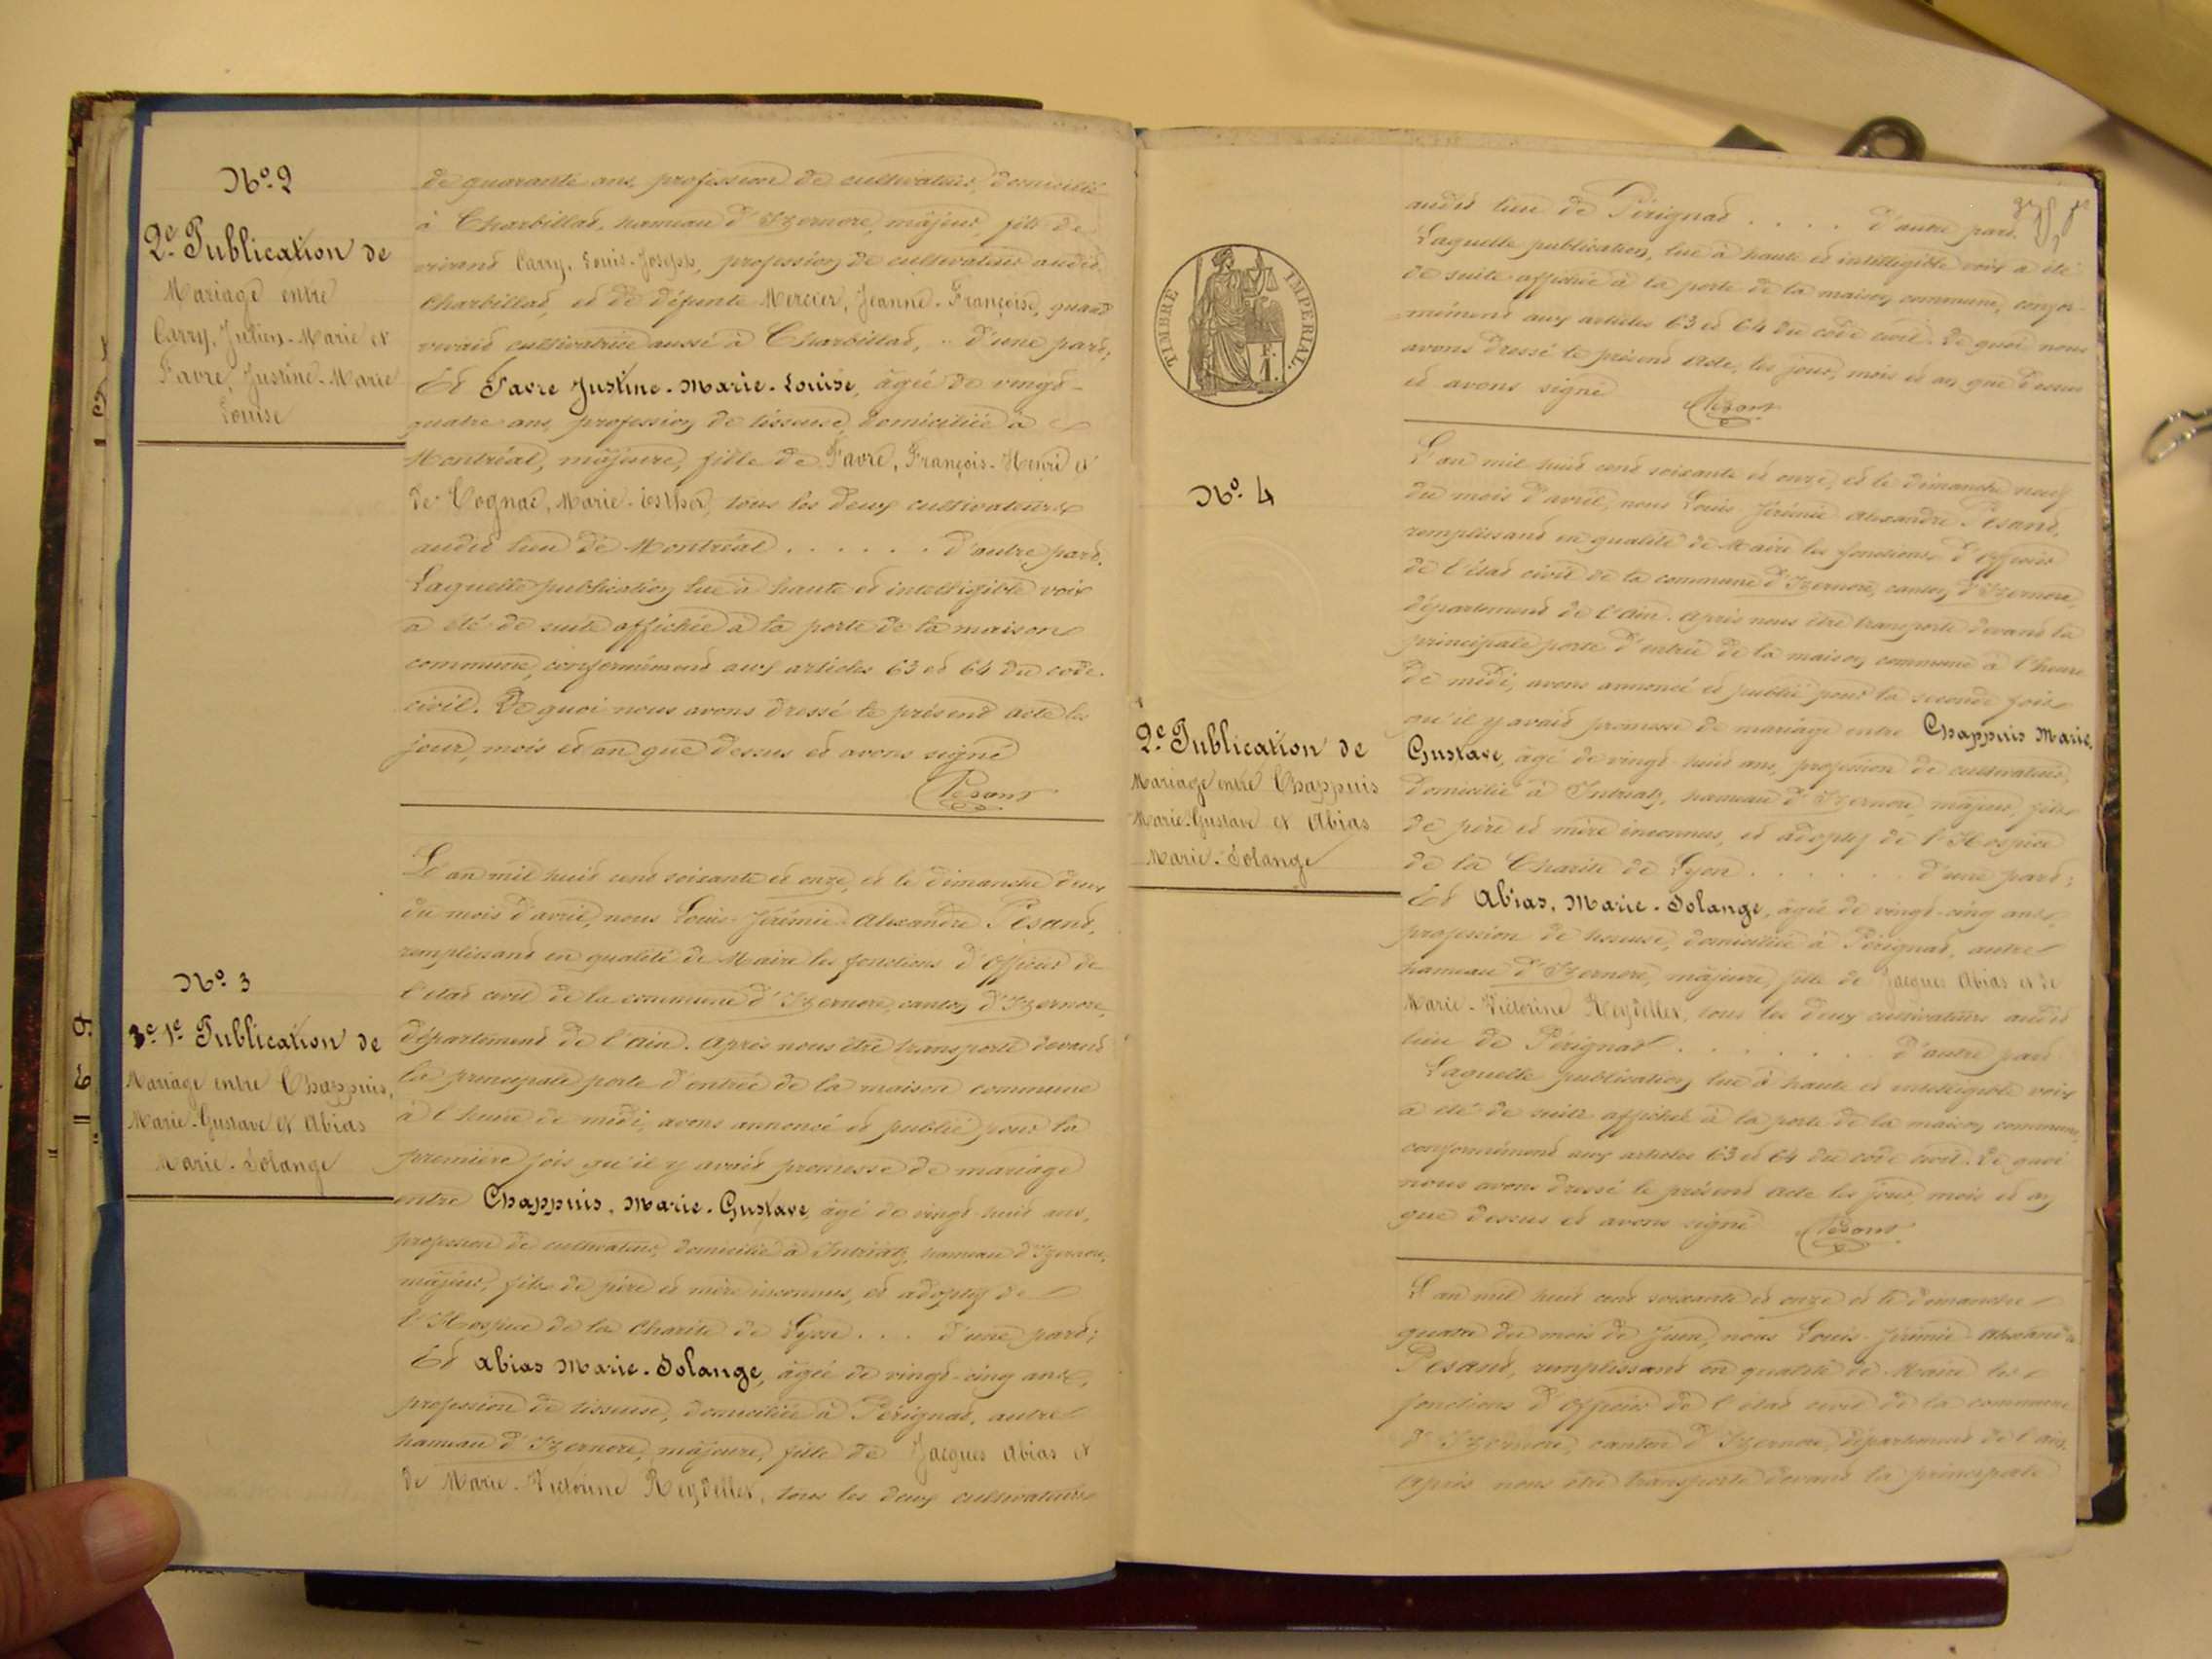 No. 2
2e. Publication de
Mariage entre
Carry, Julien-Marie et
Favre, Justine-Marie
Louise
de quarante ans, profession de cultivateur, domicilié
à Charbillat, hameau d'Izernore, majeur, fils de
vivant Carry, Louis-Joseph, profession de cultivateur audit
Charbillat, et de défunte Mercier, Jeanne-Françoise, quand
vivait cultivatrice aussi à Charbillat, .. d'une part;
Et Favre Justine-Marie-Louise, âgée de vingt-
quatre ans, profession de tisseuse, domiciliée à
Montréal, majeure, fille de Favre, François-Henri et
de Cognat, Marie-Esther, tous les deux cultivateurs
audit lieu de Montréal . . . . . . d'autre part.
Laquelle publication, lue à haute et intelligible voix
a été de suite affichée à la porte de la maison
commune, conformément aux articles 63 et 64 du code
civil. De quoi nous avons dressé le présent acte les
jour, mois et an que dessus et avons signé
Pesant
No. 3
1e Publication de
Mariage entre Chappuis,
Marie-Gustave et Abias
Marie-Solange
L'an mil huit cent soixante et onze, et le dimanche deux
du mois d'avril, nous Louis-Jérémie-Alexandre Pesant,
remplissant en qualité de Maire les fonctions d'officier de
l'état civil de la commune d'Izernore, canton d'Izernore,
département de l'ain. Après nous être transporté devant
la principale porte d'entrée de la maison commune
à l'heure de midi, avons annoncé et publié pour la
première fois qu'il y avait promesse de mariage
entre Chappuis, Marie-Gustave, âgé de vingt-huit ans,
profession de cultivateur, domicilié à Intriat, hameau d'Izernore,
majeur, fils de père et mère inconnus, et adoptif de
l'Hospice de la Charité de Lyon . . . d'une part;
Et Abias Marie-Solange, âgée de vingt-cinq ans,
profession de tisseuse, domiciliée à Pérignat, autre
hameau d'Izernore, majeure, fille de Jacques Abias et
de Marie-Victorine Reydellet, tous les deux cultivateurs
TIMBRE IMPERIAL.
audit lieu de Pérignat . . . . d'autre part.
Laquelle publication, lue à haute et intelligible voix a été
de suite affichée à la porte de la maison commune, confor-
mément aux articles 63 et 64 du code civil. De quoi nous
avons dressé le présent Acte, les jour, mois et an que dessus
et avons signé
Pesant
No. 4
2e. Publication de
Mariage entre Chappuis
Marie-Gustave et Abias
Marie-Solange
L'an mil huit cent soixante et onze, et le dimanche neuf
du mois d'avril, nous Louis Jérémie Alexandre Pesant,
remplissant en qualité de Maire les fonctions d'officier
de l'état civil de la commune d'Izernore, canton d'Izernore,
département de l'ain. Après nous être transporté devant la
principale porte d'entrée de la maison commune à l'heure
de midi, avons annoncé et publié pour la seconde fois
qu'il y avait promesse de mariage entre Chappuis Marie-
Gustave, âgé de vingt huit ans, profession de cultivateur,
domicilié à Intriat, hameau d'Izernore, majeur, fils
de père et mère inconnus, et adoptif de l'Hospice
de la Charité de Lyon . . . . . . d'une part;
Et Abias, Marie-Solange, âgée de vingt-cinq ans,
profession de tisseuse, domiciliée à Pérignat, autre
hameau d'Izernore, majeure, fille de Jacques Abias et de
Marie-Victorine Reydellet, tous les deux cultivateurs audit
lieu de Pérignat . . . . . . . d'autre part
Laquelle publication, lue à haute et intelligible voix
a été de suite affichée à la porte de la maison commune,
conformément aux articles 63 et 64 du code civil. De quoi
nous avons dressé le présent acte les jour, mois et an
que dessus et avons signé Pesant
L'an mil huit cent soixante et onze et le dimanche
quatre du mois de Juin, nous Louis-Jérémie-Alexandre
Pesant, remplissant en qualité de Maire les
fonctions d'officier de l'état civil de la commune
d'Izernore, canton d'Izernore, département de l'ain
Après nous être transporté devant la principale